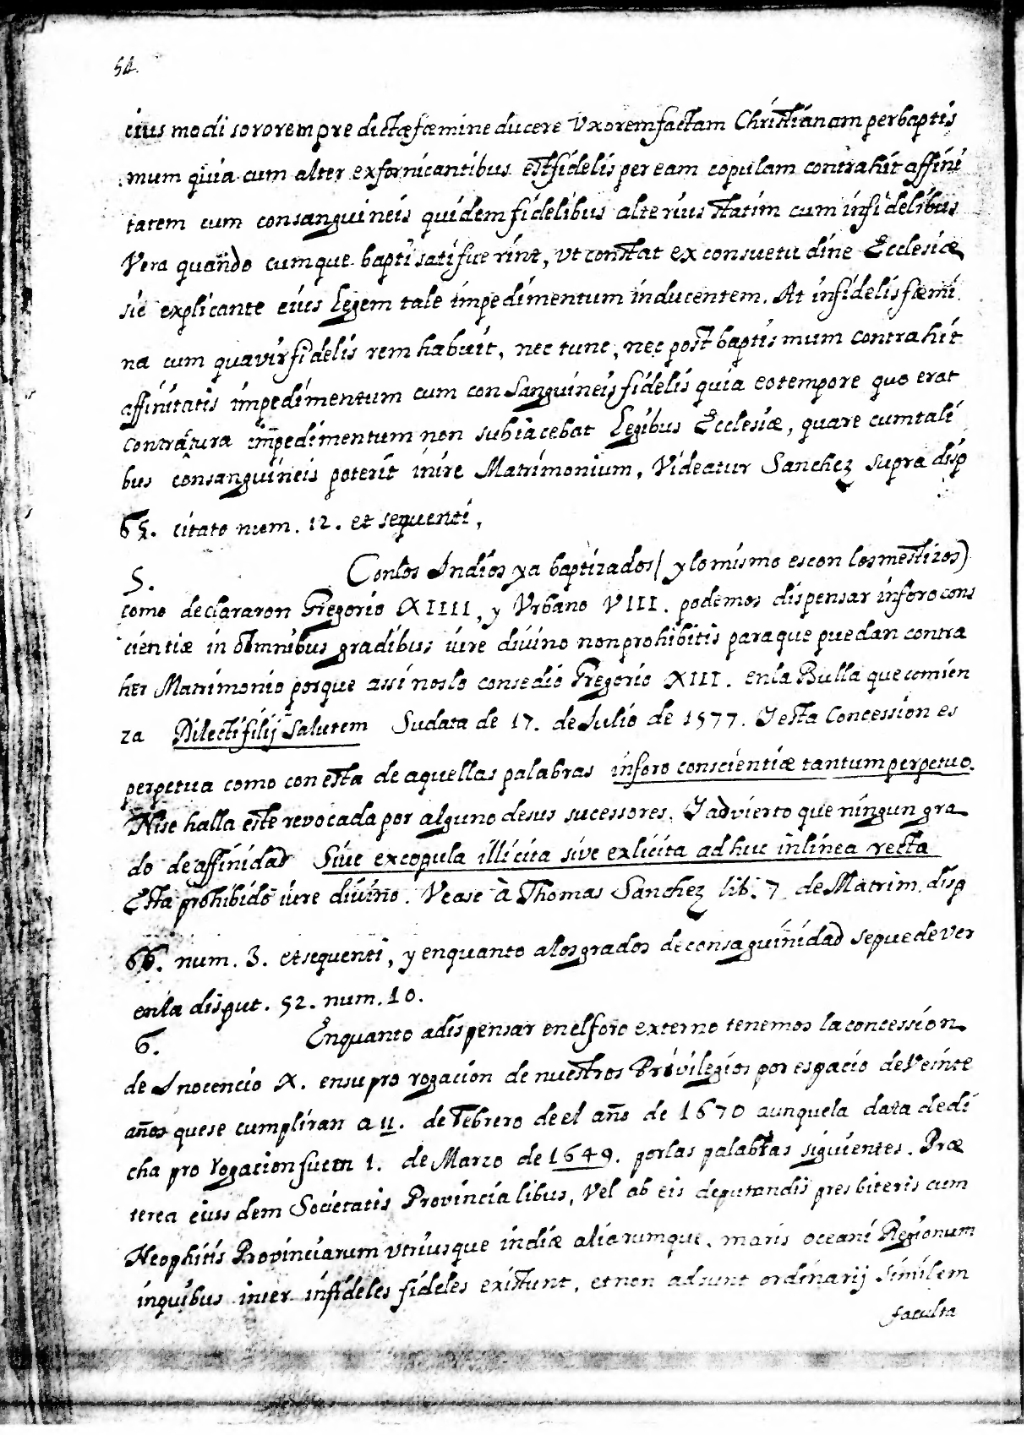 54.
eius modi sororem pre dictæ fæmine ducere Vxorem factam Christianam per baptis
mum quia cum alter ex fornicantibus est fidelis per eam copulam contrahit affini
tatem cum consanguineis quidem fidelibus alterius statim cum infidelibus
Vero quando cumque baptisati fuerint, vt constat ex consuetudine Ecclesiæ
sic explicante eius Legem tale impedimentum inducentem. At infidelis fæmi
na cum quavir fidelis rem habuit, nec tunc, nec post baptismum contrahit
affinitatis impedimentum cum consanguineis fidelis quia eo tempore quo erat
contractura impedimentum non subiacebat Legibus Ecclesiæ, quare cum tali
bus consanguineis poterit inire Matrimonium, Videatur Sanchez supra disp
65. citato num. 12. et sequenti,
5. Con los Indios ya baptizados (y lo mismo es con los mestizos)
como declararon Gregorio XIIII, y Vrbano VIII. podemos dispensar in foro cons
cientiæ in omnibus gradibus iure divino non prohibitis para que puedan contra
her Matrimonio porque assi nos lo consedio Gregorio XIII. en la Bulla que comien
za Dilecti filij Salutem Su data de 17. de Julio de 1577. Y esta Concession es
perpetua como con esta de aquellas palabras in foro conscientiæ tantum perpetuo.
Ni se halla este revocada por alguno de sus sucessores. Y advierto que ningun gra
do de affinidad Sive ex copula illicita sive ex licita ad huc in linea recta
Esta prohibido iure divino. Vease à Thomas Sanchez lib. 7. de Matrim. disp
66. num. 3. et sequenti, y en quanto a los grados de consaguinidad se puede ver
en la disput. 52. num. 10.
6. En quanto a dispensar en el foro externo tenemos la concession
de Inocencio X. en su pro rogacion de nuestros Privilegios por espacio de Veinte
años que se cumpliran a 11. de Febrero de el año de 1670 aunque la data de di
cha pro rogacion fue en 1. de Marzo de 1649. por las palabras siguientes. Præ
terea eius dem Societatis Provincialibus, Vel ab eis deputandis presbiteris cum
Neophitis Provinciarum vtriusque indiæ aliarumque, maris oceani Regionum
in quibus inter infideles fideles existunt, et non adsunt ordinarij Similem
faculta